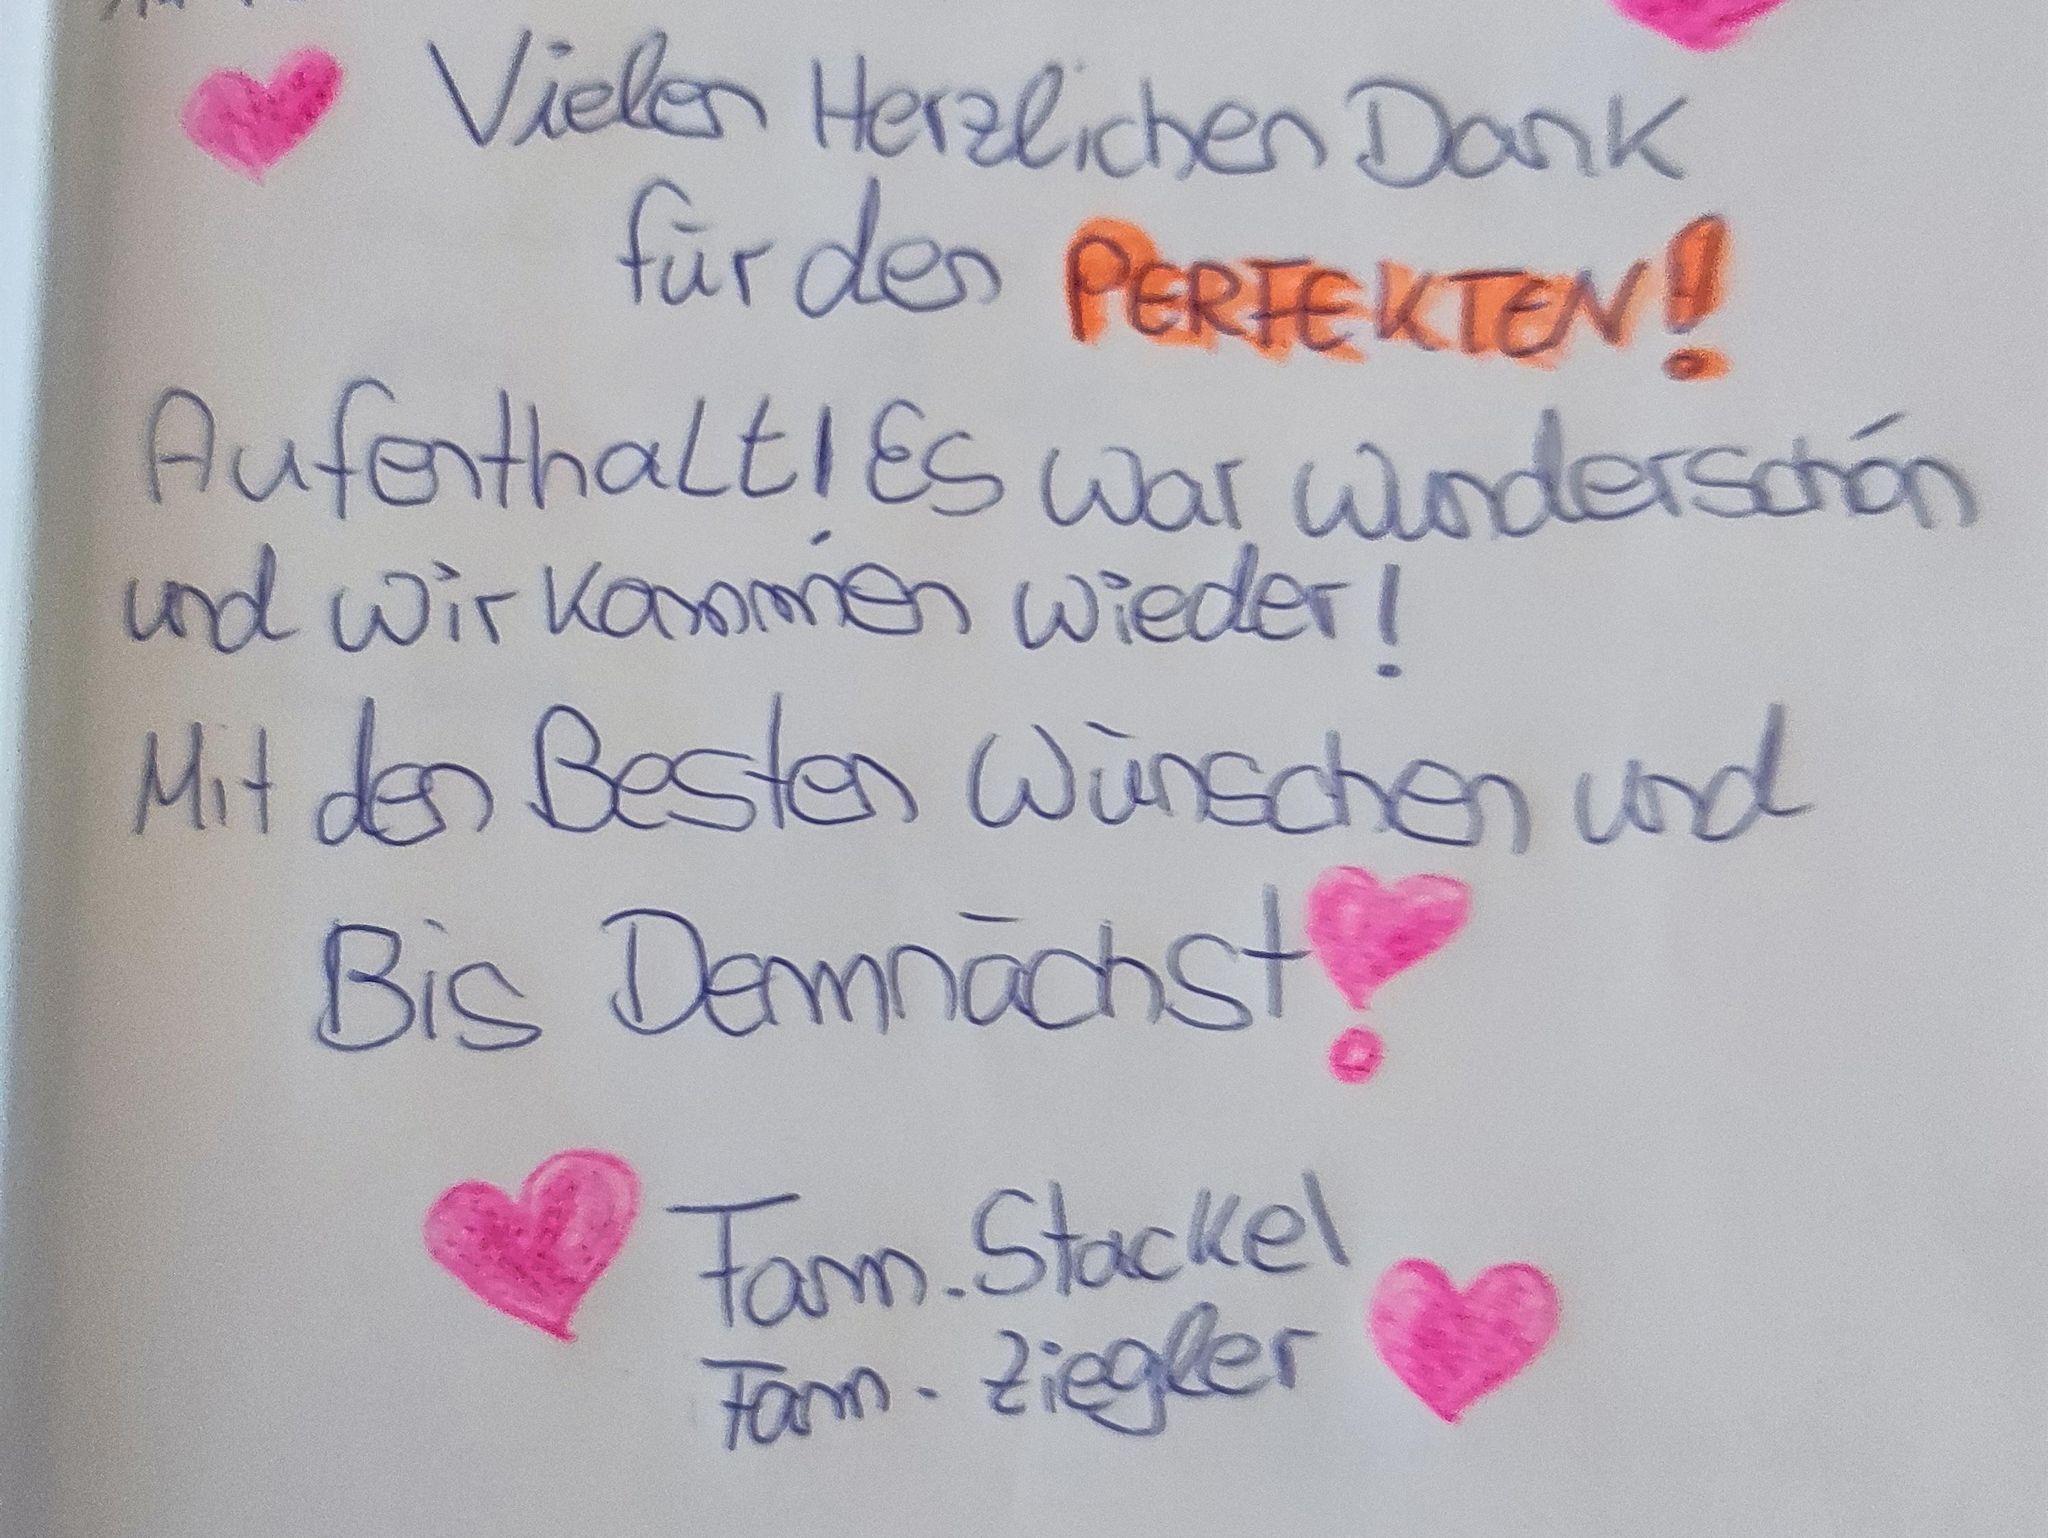 Vielen Herzlichen Dank
für den PERFEKTEN!
Aufenthalt! Es war wunderschön
und wir kommen wieder!
Mit den Besten Wünschen und
Bis Demnächst!
Fam. Stackel
Fam. Ziegler